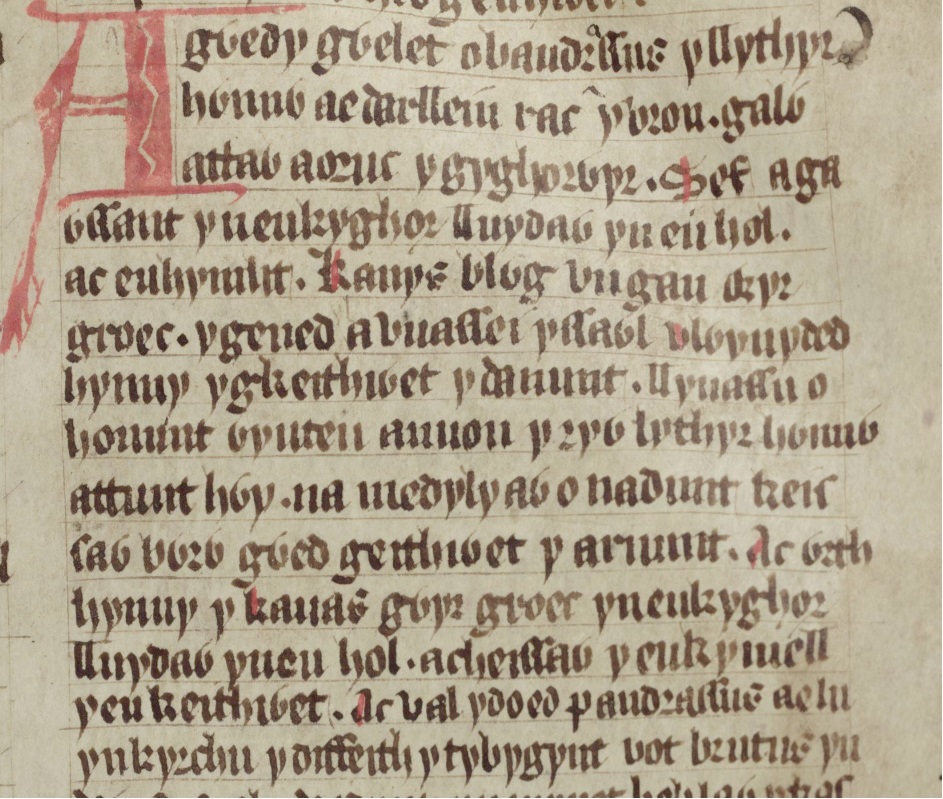 Agỽedy gỽelet obandrassus yllythyr
hỽnnỽ aedarllein rac y vron. galỽ
attaỽ aoruc ygyghorwyr. Sef aga
ỽssant yneukyghor lluydaỽ yn eu hol.
ac eu hymlit. Kanys blỽg vu gan ỽyr
groec. ygened auuassei yssaỽl vlỽynyded
hynny ygkeithiwet ydanunt. llynassu o
honunt ỽynteu anuon yryỽ lythyr hỽnnỽ
attunt hỽy. na medylyaỽ onadunt keis
saỽ bỽrỽ gỽed geithiwet y arnunt. Ac ỽrth
hynny y kauas gỽyr groec yneukyghor
lluydaỽ yneu hol. acheissaỽ y eukymell
yeukeithiwet. Ac val ydoed pandrassus aelu
ynkyrchu ydiffeith ytybygynt vot brutus yn